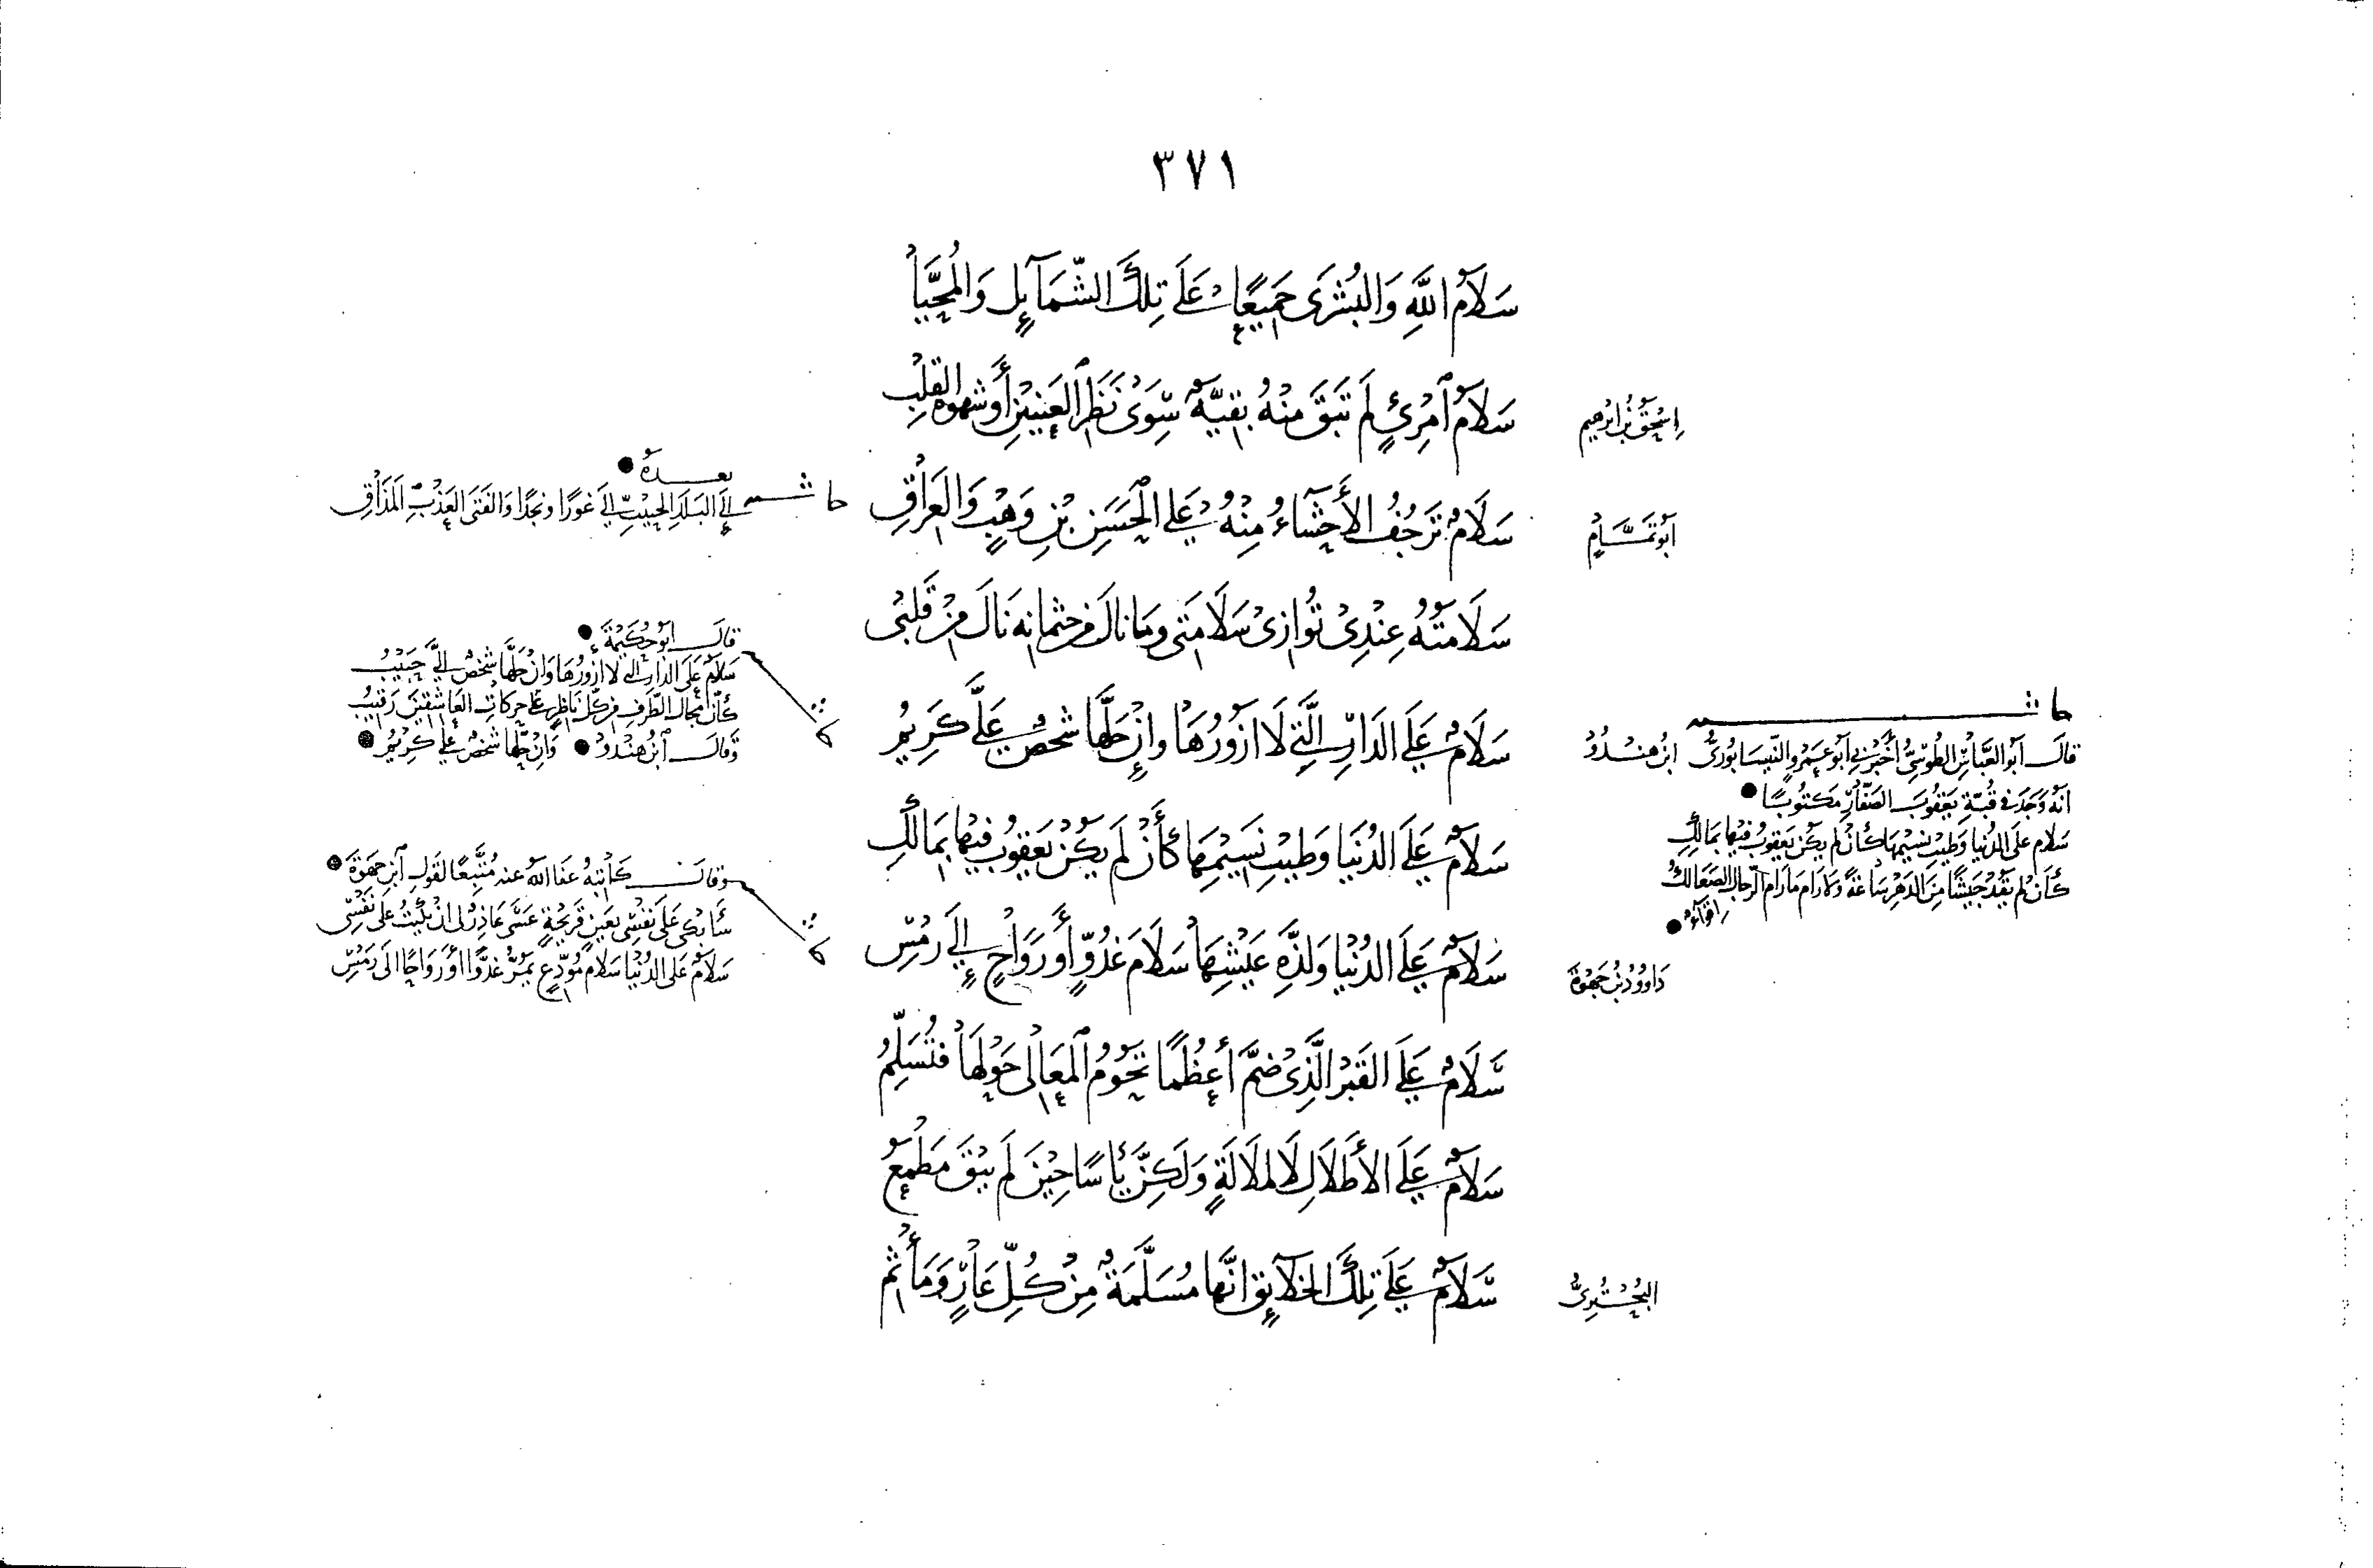 ٣٧١
سَلَامُ اللَّهِ وَالبُشْرَى جَمِيعًا عَلَى تِلْكَ الشَّمَآئِلِ وَالمُحَيَّا
إسْحٰقُ بنُ ابرٰهِيم
سَلَامُ امْرِئٍ لَم تَبْقَ مِنْهُ بَقِيَّةٌ سِوَى نَظَرِ العَيْنَيْنِ أَوْ شَهْوَةِ القَلْبِ
أبُو تَمَّامٍ
سَلَامٌ تَرْجُفُ الأَحْشَاءُ مِنْهُ عَلَى الحَسَنِ بْنِ وَهْبٍ وَالعِرَاقِ
حاشية
بعده
إلَى البَلَدِ الحَبِيبِ إلَيَّ غَوْرًا وَنَجْدًا وَالفَتَى العَذْبِ المَذَاقِ
سَلَامَتُهُ عِنْدِي تُوَازِي سَلَامَتِي وَمَا نَالَ مِنْ جُثْمَانِهِ نَالَ مِنْ قَلْبِي
ابنُ هِنْدُو
سَلَامٌ عَلَى الدَّارِ الَّتِي لَا أَزُورُهَا وَإِنْ حَلَّهَا شَخْصٌ عَلَيَّ كَرِيمُ
قَالَ أبُو حُكَيْمَةَ
سَلَامٌ عَلَى الدَّارِ الَّتِي لَا أَزُورُهَا وَإنْ حَلَّهَا شَخْصٌ إلَيَّ حَبِيبُ
كَأَنَّ مَجَالَ الطَّرْفِ مِنْ كُلِّ نَاظِرٍ عَلَى حَرَكَاتِ العَاشِقِينَ رَقِيبُ
وَقَالَ ابْنُ هِنْدُو وَإنْ حَلَّهَا شَخْصٌ عَلَيَّ كَرِيمُ
حاشية
قَالَ أبُو العَبَّاسِ الطُّوسِيُّ أَخْبَرَنِي أبُو عَمْرٍو النَّيْسَابُورِيُّ
أنَّهُ وَجَدَ فِي قُبَّةِ يَعْقُوبَ الصَّفَّارِ مَكْتُوبًا
سَلَام عَلَى الدُّنْيَا وَطِيبِ نَسِيمِهَا كَأَنْ لَم يَكُنْ يَعْقُوبُ فِيهَا بِمَالِكِ
كَأَنْ لَم يَقُدْ جَيْشًا مِنَ الدَّهْرِ سَاعَةً وَلَا رَامَ مَا رَامَ الرِّجَالُ الصَّعَالِكُ
إقْوَاءٌ
سَلَامٌ عَلَى الدُّنْيَا وَطِيبِ نَسِيمِهَا كَأَنْ لَم يَكُنْ يَعْقُوبُ فِيهَا بِمَالِكِ
دَاوُودُ بْنُ جَهْوَةَ
سَلَامٌ عَلَى الدُّنْيَا وَلَذَّةِ عَيْشِهَا سَلَامَ غُدُوٍّ أَوْ رَوَاحٍ إلَى رَمْسِ
وَقَالَ كَاتِبُهُ عَفَا اللهُ عنه مُتَّبِعًا لِقَولِ ابْنِ جَهْوَةَ
سَأَبْكِي عَلَى نَفْسِي بِعَيْنٍ قَرِيحَةٍ عَسَى عَاذِرٌ لِي انْ بَكَيْتُ عَلَى نَفْسِي
سَلَامٌ عَلَى الدُّنْيَا سَلَامَ مُوَدِّعٍ يَمُرُّ غُدُوًّا أَوْ رَوَاحًا الَى رَمْسِ
سَلَامٌ عَلَى القَبْرِ الَّذِي ضَمَّ أَعْظُمًا تَحُومُ المَعَالِي حَوْلَهَا فَتُسَلِّمُ
سَلَامٌ عَلَى الأَطْلَالِ لَا لِمَلَالَةٍ وَلَكِنَّ يَأْسًا حِينَ لَم يَبْقَ مَطْمَعُ
البُحْتُرِيُّ
سَلَامٌ عَلَى تِلْكَ الخَلَآئِقِ انَّهَا مُسَلَّمَةٌ مِنْ كُلِّ عَارٍ وَمَأْثَمِ